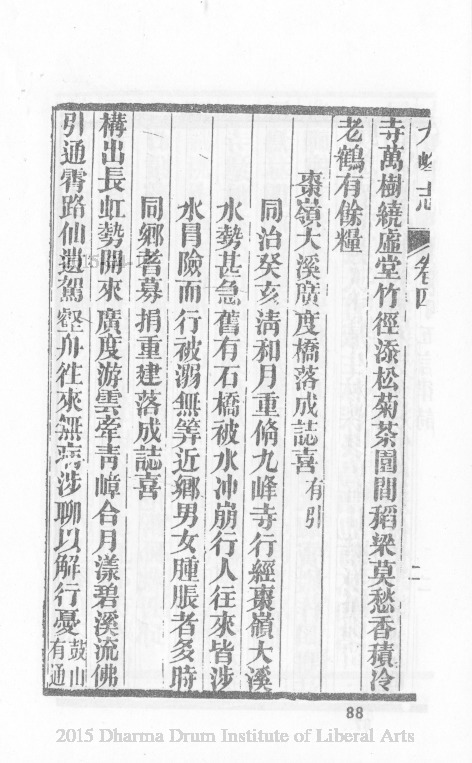 九峰志 卷四 二
寺萬樹繞虛堂竹徑添松菊茶園間稻梁莫愁香積冷
老鶴有餘糧
棗嶺大溪廣度橋落成誌喜有引
同治癸亥清和月重脩九峰寺行經棗嶺大溪
水勢甚急舊有石橋被水冲崩行人往來皆涉
水冐險而行被溺無筭近鄉男女腫脹者多時
同鄉耆募捐重建落成誌喜
構出長虹勢開來廣度游雲牽靑嶂合月漾碧溪流佛
引通霄路仙遺駕壑舟往來無病涉聊以解行憂鼓山有通
88
2015 Dharma Drum Institute of Liberal Arts